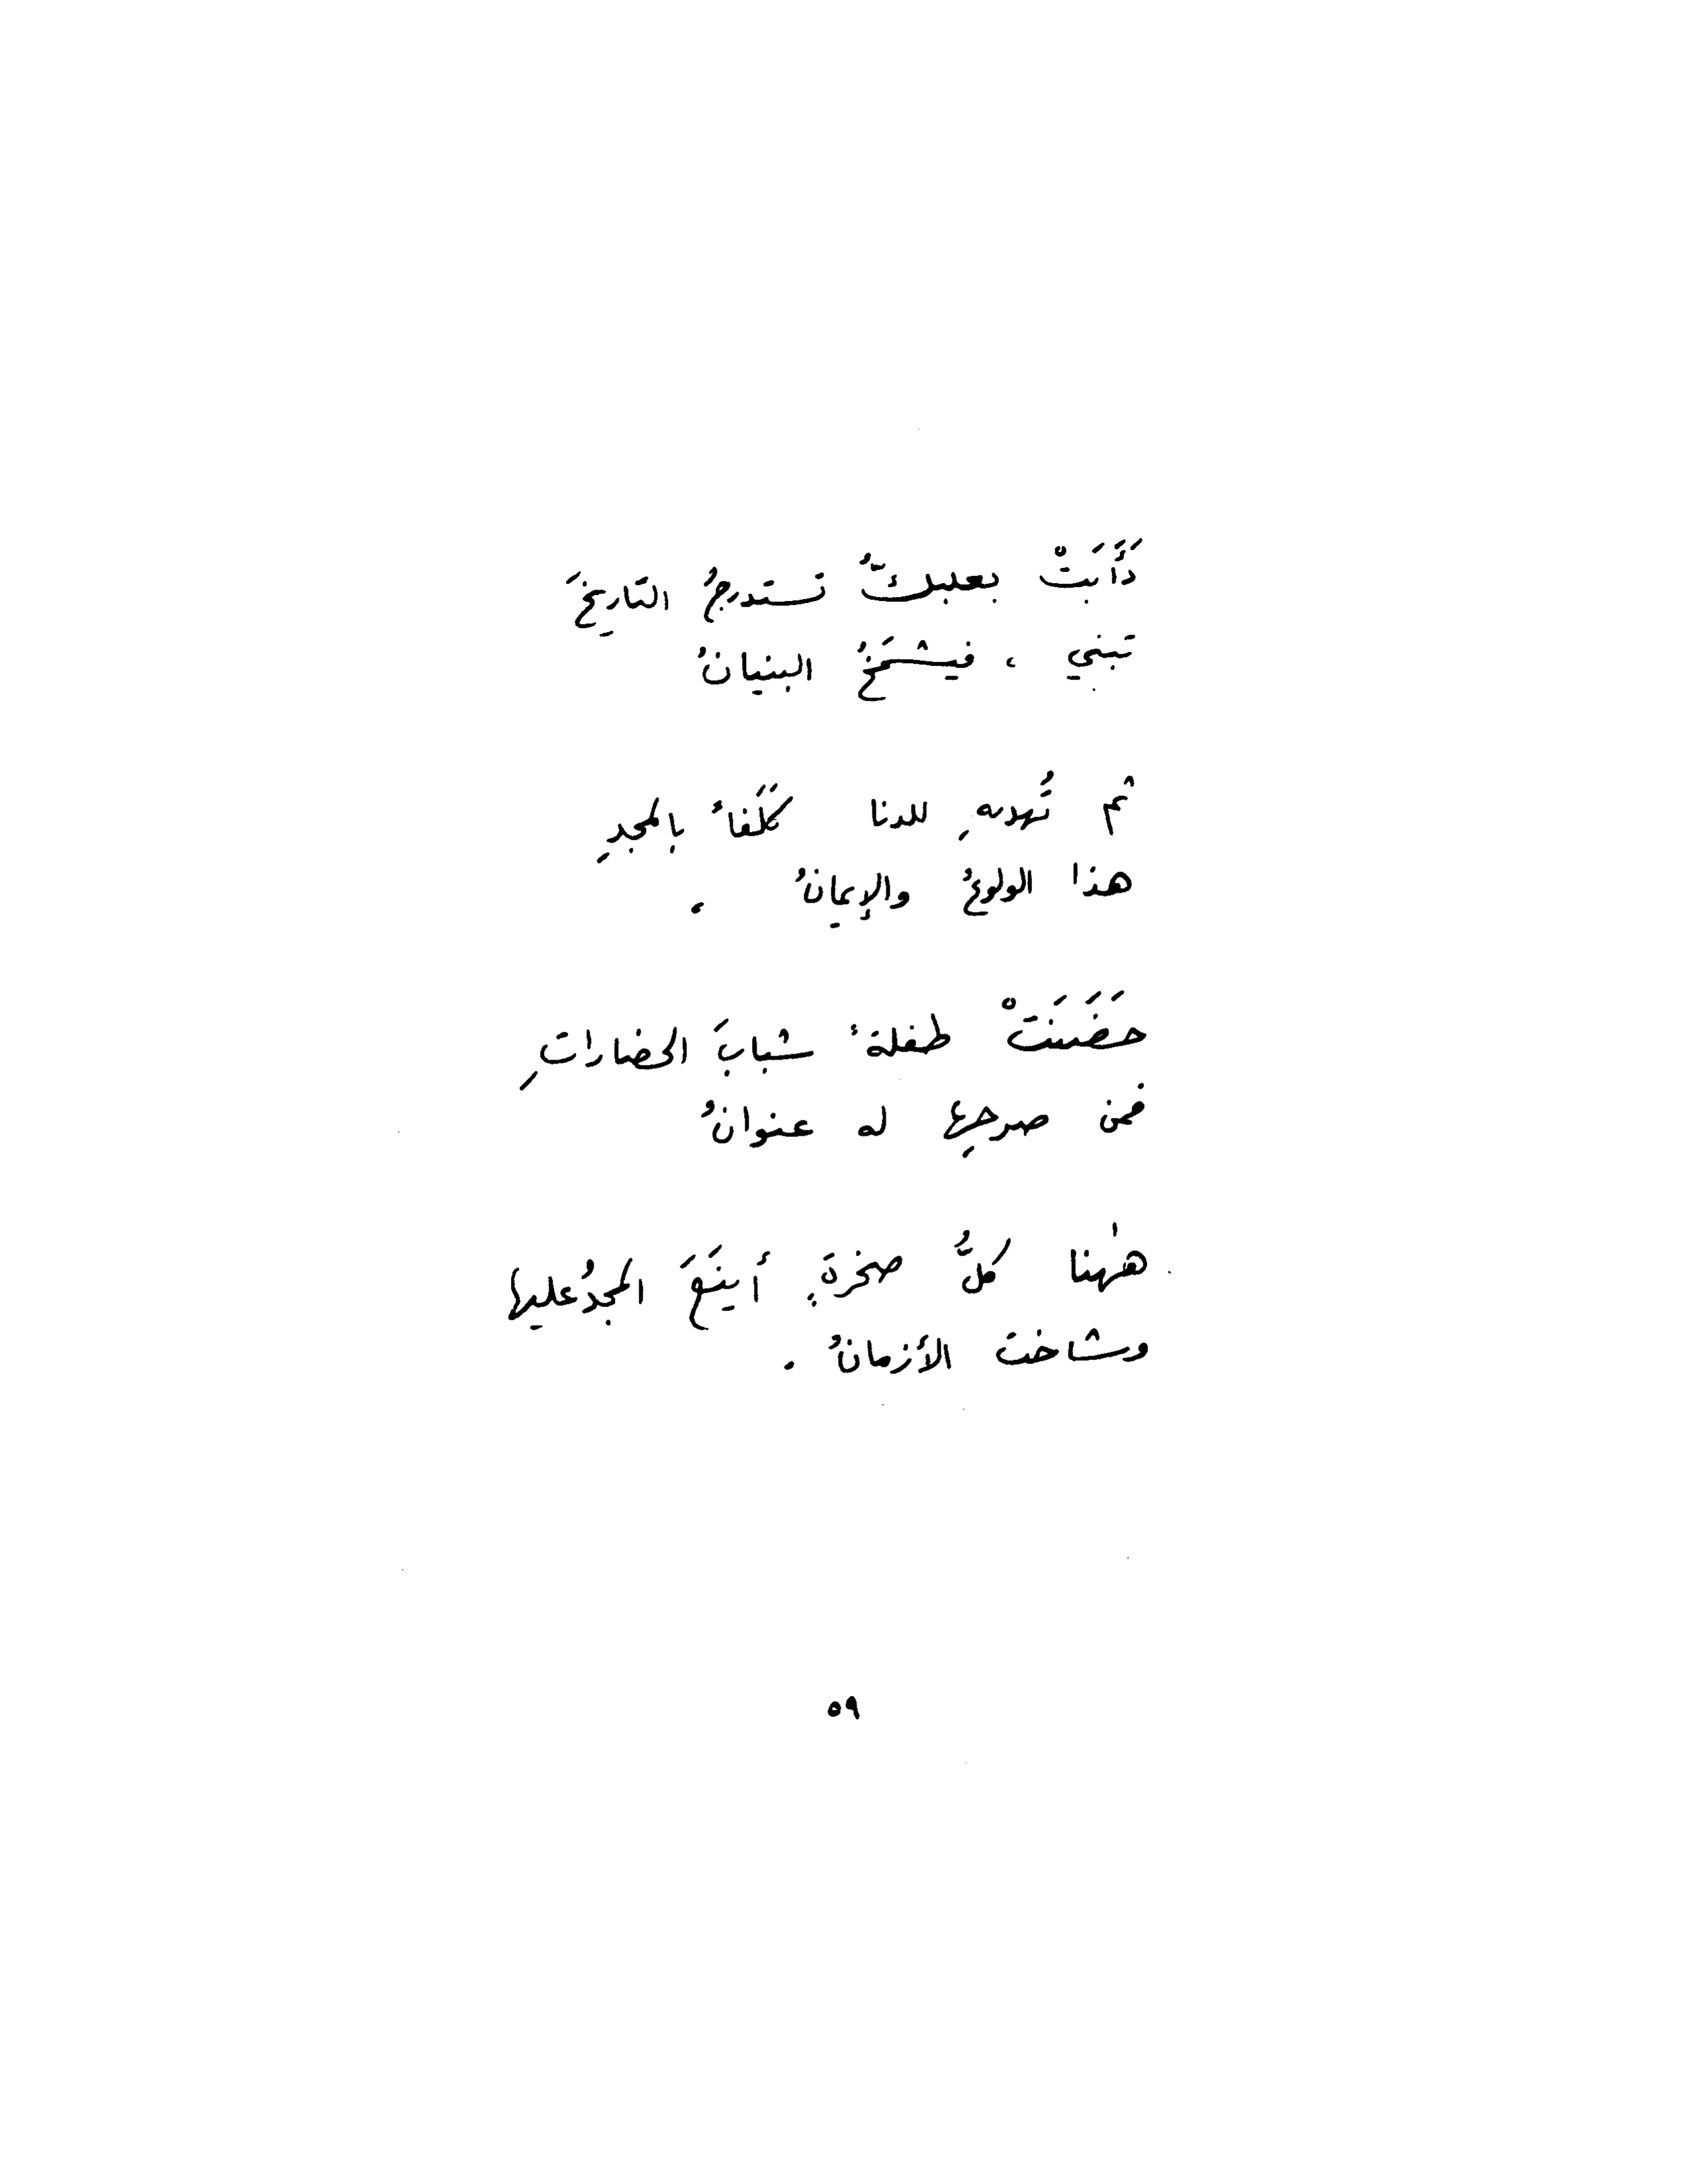 دَأَبَتْ بعلبكُّ تستدرجُ التاريخَ
تبني ، فيشمَخُ البنيانُ
ثم تُهديهِ للدنا كَلَفاً بالمجدِ
هذا الولوعُ والإيمانُ ،
حَضَنَتْ طفلةً شبابَ الحضاراتِ
فمن صرحِها له عنوانُ
هٰهنا كلُّ صخرةٍ أينَعَ المجدُ عليها
وشاخت الأزمانُ .
٥٩